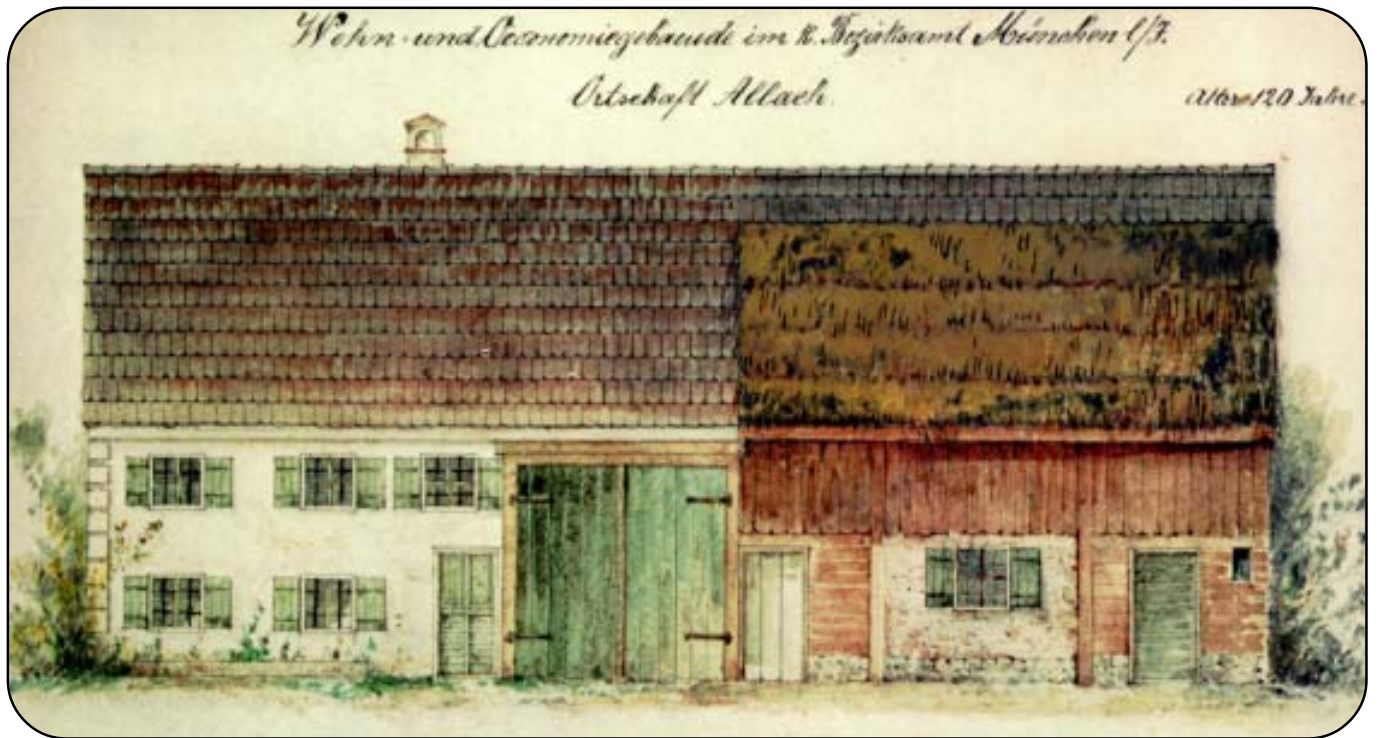 Wohn- und Oeconomiegebaeude im K. Bezirksamt München I/I.
Ortschaft Allach.
Alter 120 Jahre.